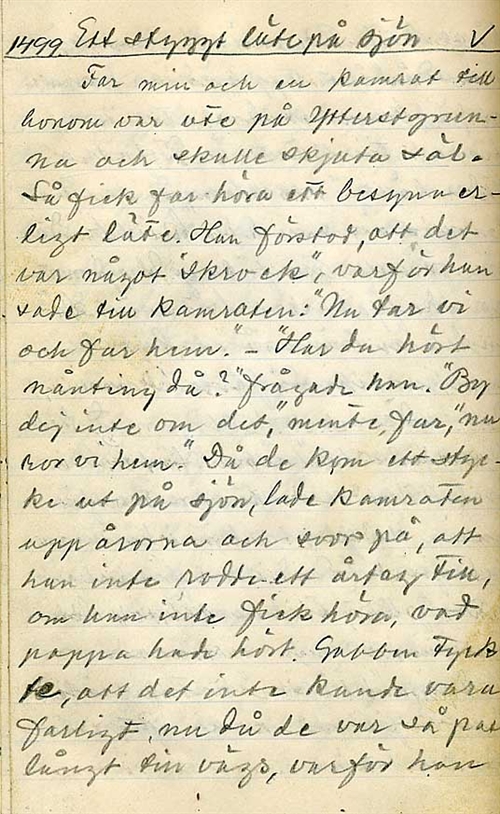 1499. Ett styggt läte på sjön V
Far min och en kamrat till
honom var ute på Ytterstgrun-
na och skulle skjuta säl.
Så fick far höra ett besynner-
ligt läte. Han förstod, att det
var något "skrock", varför han
sade till kamraten: "Nu tar vi
och far hem." - "Har du hört
nånting då?" frågade han. "Bry
dej inte om det," mente far, "nu
ror vi hem." Då de kom ett styc-
ke ut på sjön, lade kamraten
upp årorna och svor på, att
han inte rodde ett årtag till,
om han inte fick höra, vad
pappa hade hört. Gubben tyck-
te, att det inte kunde vara
farligt, nu då de var så pass
långt till vägs, varför han